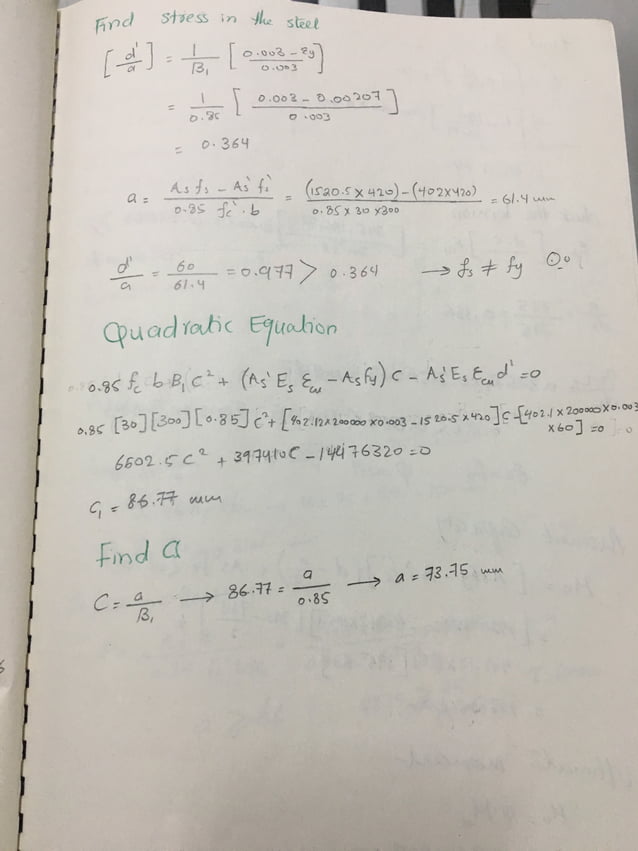 Find stress in the steel
[d'/a] = 1/β₁ [0.003 - εy / 0.003]
= 1/0.85 [0.003 - 0.00207 / 0.003]
= 0.364
a = As fs - As' fs' / 0.85 fc' . b = (1520.5 × 420) - (402 × 420) / 0.85 × 30 × 300 = 61.4 mm
d'/a = 60/61.4 = 0.977 > 0.364 → fs ≠ fy
Quadratic Equation
0.85 fc b B₁ C² + (As' Es Ecu - As fy) C - As' Es Ecu d' = 0
0.85 [30] [300] [0.85] C² + [402.12 × 200000 × 0.003 - 1520.5 × 420] C - [402.1 × 200000 × 0.003
× 60] = 0
6502.5 C² + 397410C - 14476320 = 0
C₁ = 86.77 mm
Find a
C = a/B₁ → 86.77 = a/0.85 → a = 73.75 mm